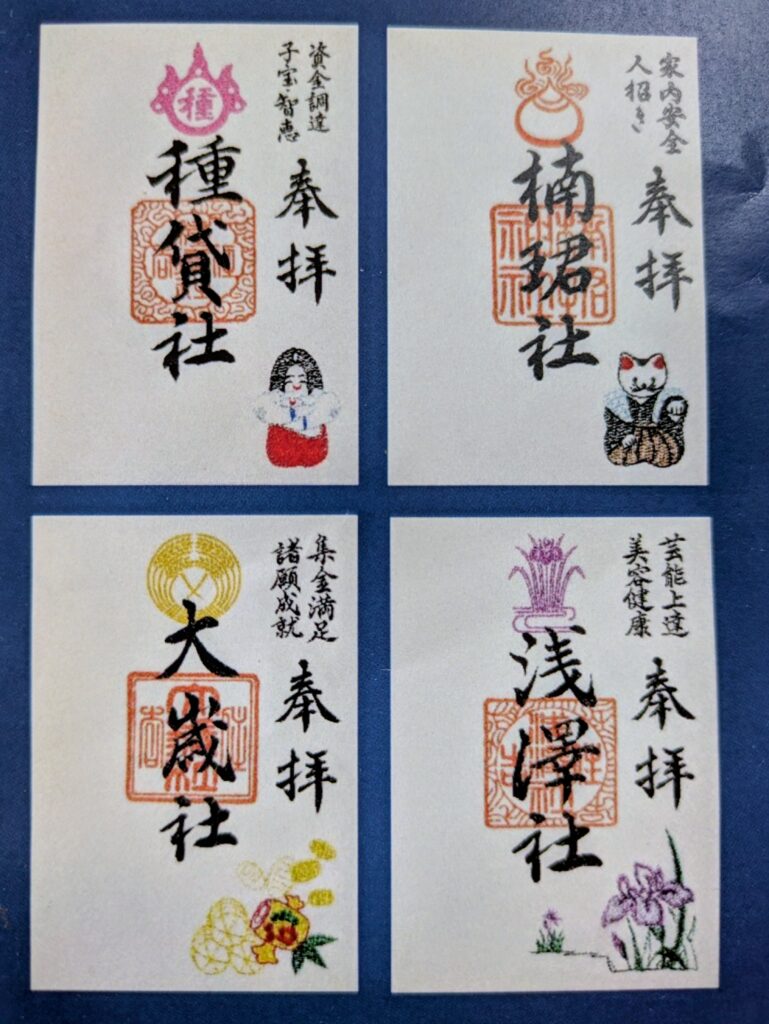 資金調達
子宝・智恵
奉拝
種
種貸社
家内安全
人招き
奉拝
楠珺社
集金満足
諸願成就
奉拝
大歳社
芸能上達
美容健康
奉拝
浅澤社